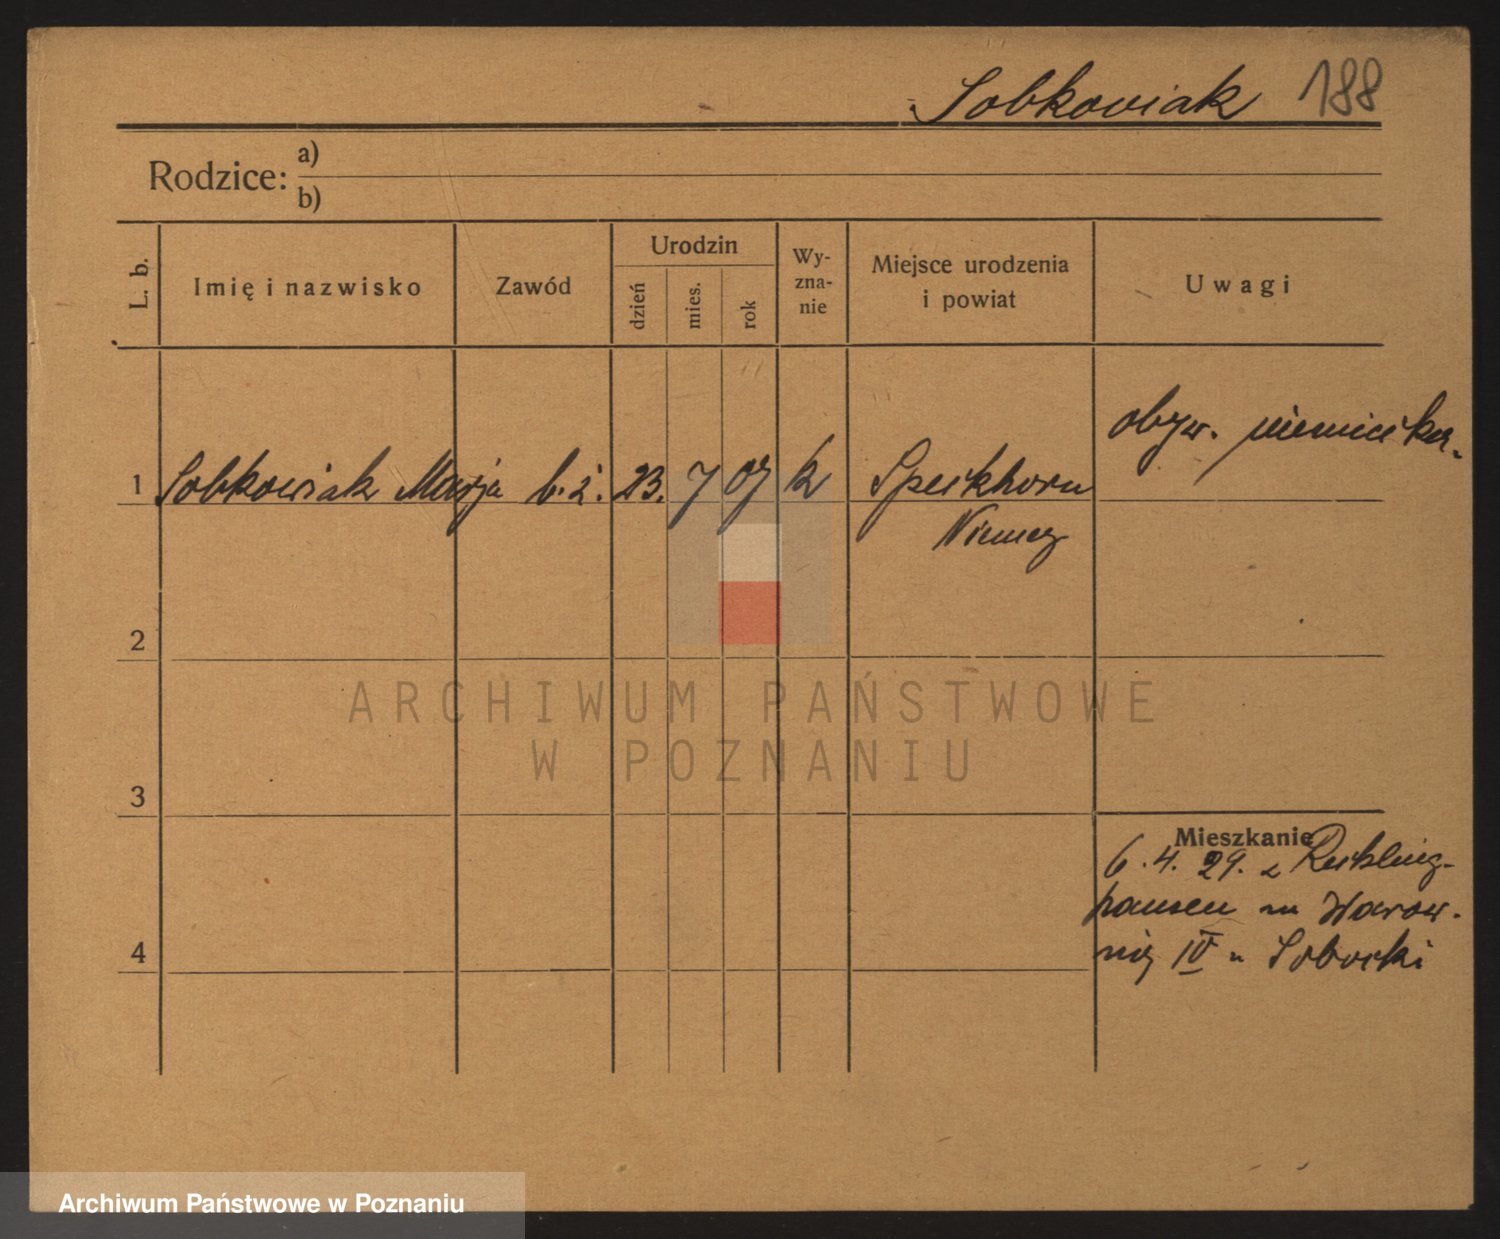 Sobkowiak 188
Rodzice: a)
b)
L. b.
Imię i nazwisko
Zawód
Urodzin
dzień
mies.
rok
Wy-
zna-
nie
Miejsce urodzenia
i powiat
Uwagi
obyw. niemiecka.
1 Sobkowiak Marja b. z. 23. 7 07 k Speckhorn
Niemcy
2
ARCHIWUM PAŃSTWOWE
W POZNANIU
3
Mieszkanie
6. 4. 29. z Reckling-
hausen
IV Sobocki
4
Archiwum Państwowe w Poznaniu